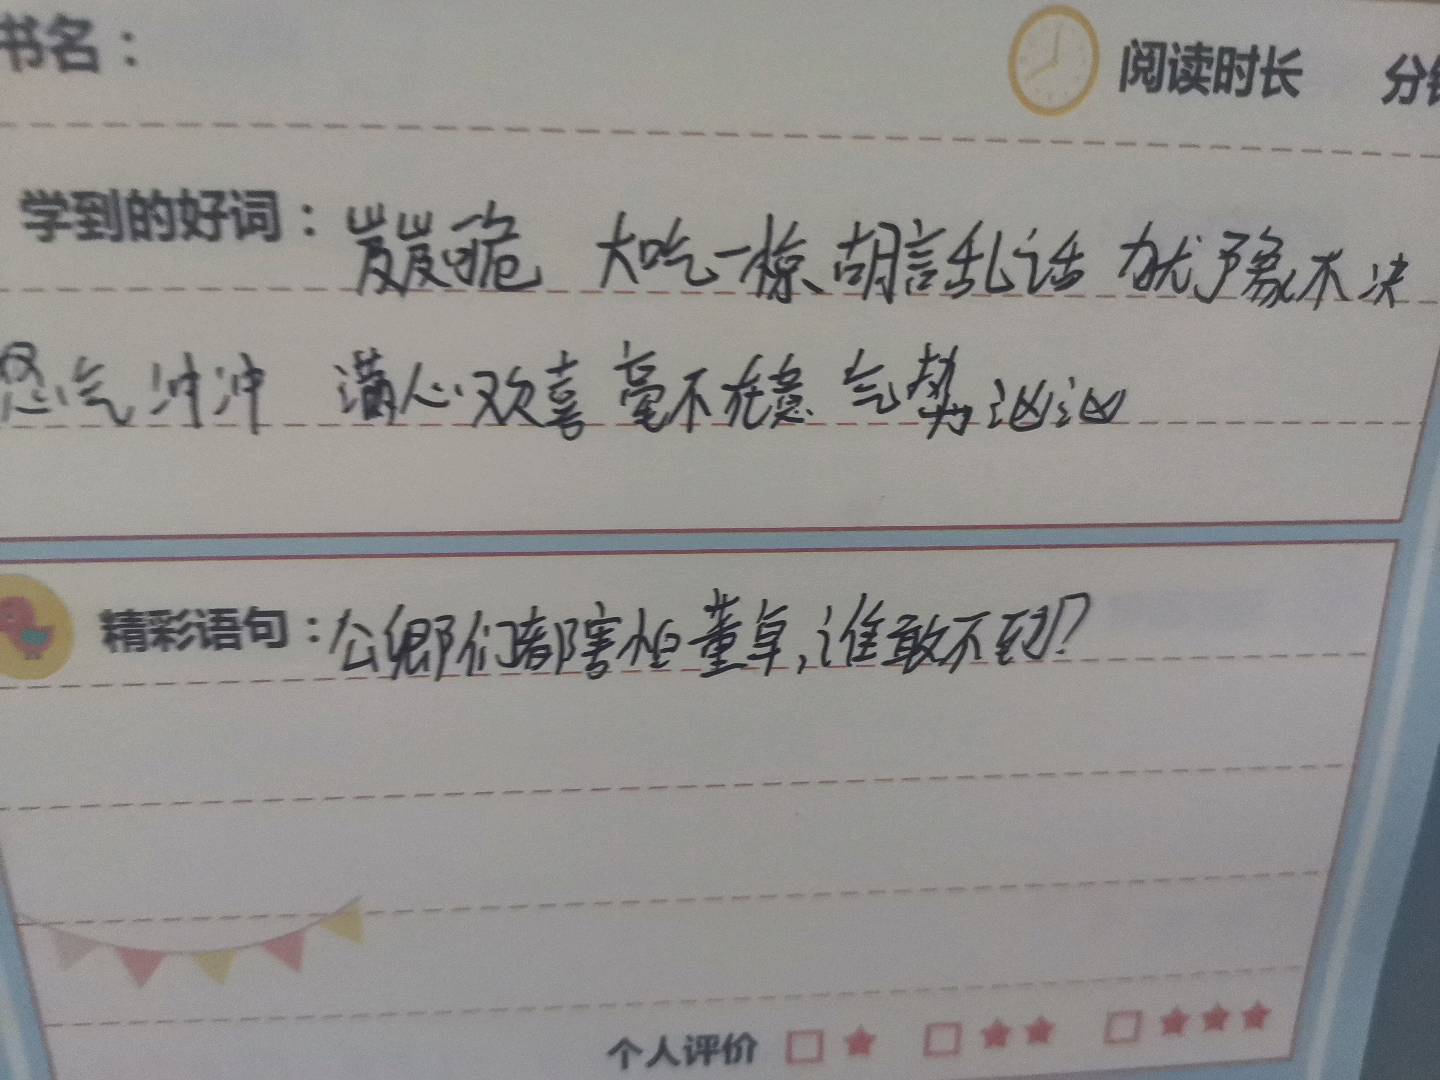 书名： 阅读时长 分钟
学到的好词： 岌岌可危 大吃一惊 胡言乱语 犹豫不决
怒气冲冲 满心欢喜 毫不在意 气势汹汹
精彩语句：公卿们都害怕董卓,谁敢不到?
个人评价 □ ★ □ ★★ □ ★★★